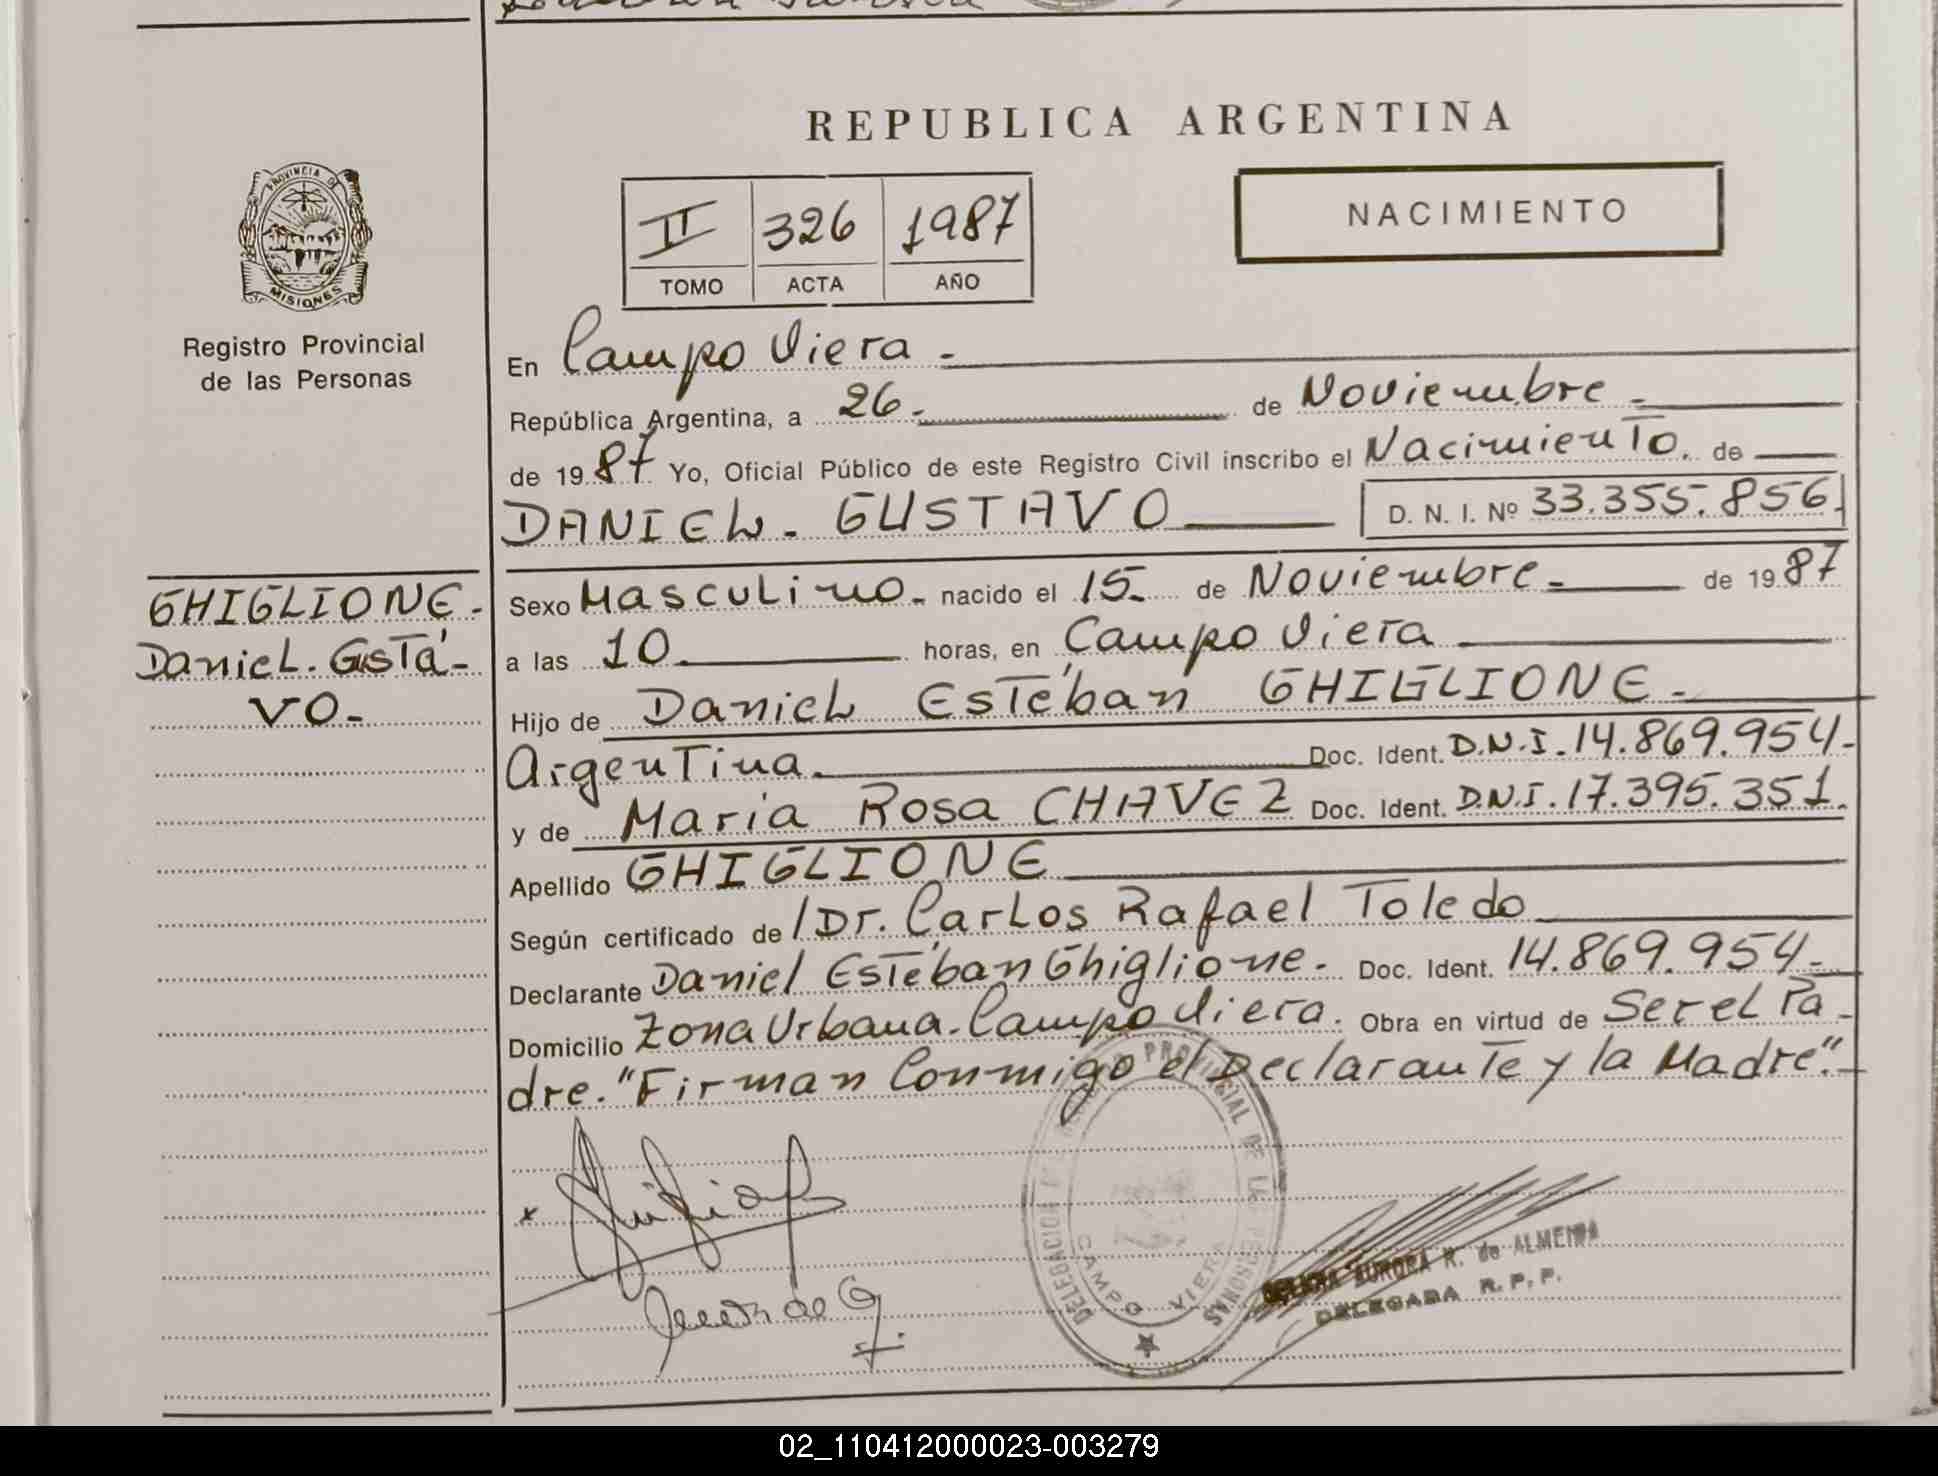 REPUBLICA ARGENTINA
PROVINCIA DE
MISIONES
Registro Provincial
de las Personas
II 326 1987
TOMO ACTA AÑO
NACIMIENTO
En Campo Viera.-
República Argentina, a 26.- de Noviembre.-
de 1987 Yo, Oficial Público de este Registro Civil inscribo el Nacimiento. de
DANIEL. GUSTAVO D. N. I. Nº 33.355.856.
GHIGLIONE.-
Daniel. Gstá-
vo.-
Sexo Masculino.- nacido el 15.- de Noviembre.- de 1987
a las 10 horas, en Campo Viera
Hijo de Daniel Esteban GHIGLIONE.-
Argentina. Doc. Ident. D.N.I. 14.869.954.-
y de Maria Rosa CHAVEZ Doc. Ident. D.N.I. 17.395.351.
Apellido GHIGLIONE
Según certificado de Dr. Carlos Rafael Toledo
Declarante Daniel Esteban Ghiglione.- Doc. Ident. 14.869.954.-
Domicilio Zona Urbana. Campo Viera. Obra en virtud de Ser el Pa-
dre. "Firman Conmigo el Declarante y la Madre".-
DELEGACION PROVINCIAL DE LAS PERSONAS
CAMPO VIERA
AURORA R. de ALMEIDA
DELEGADA R. P. P.
02_110412000023-003279